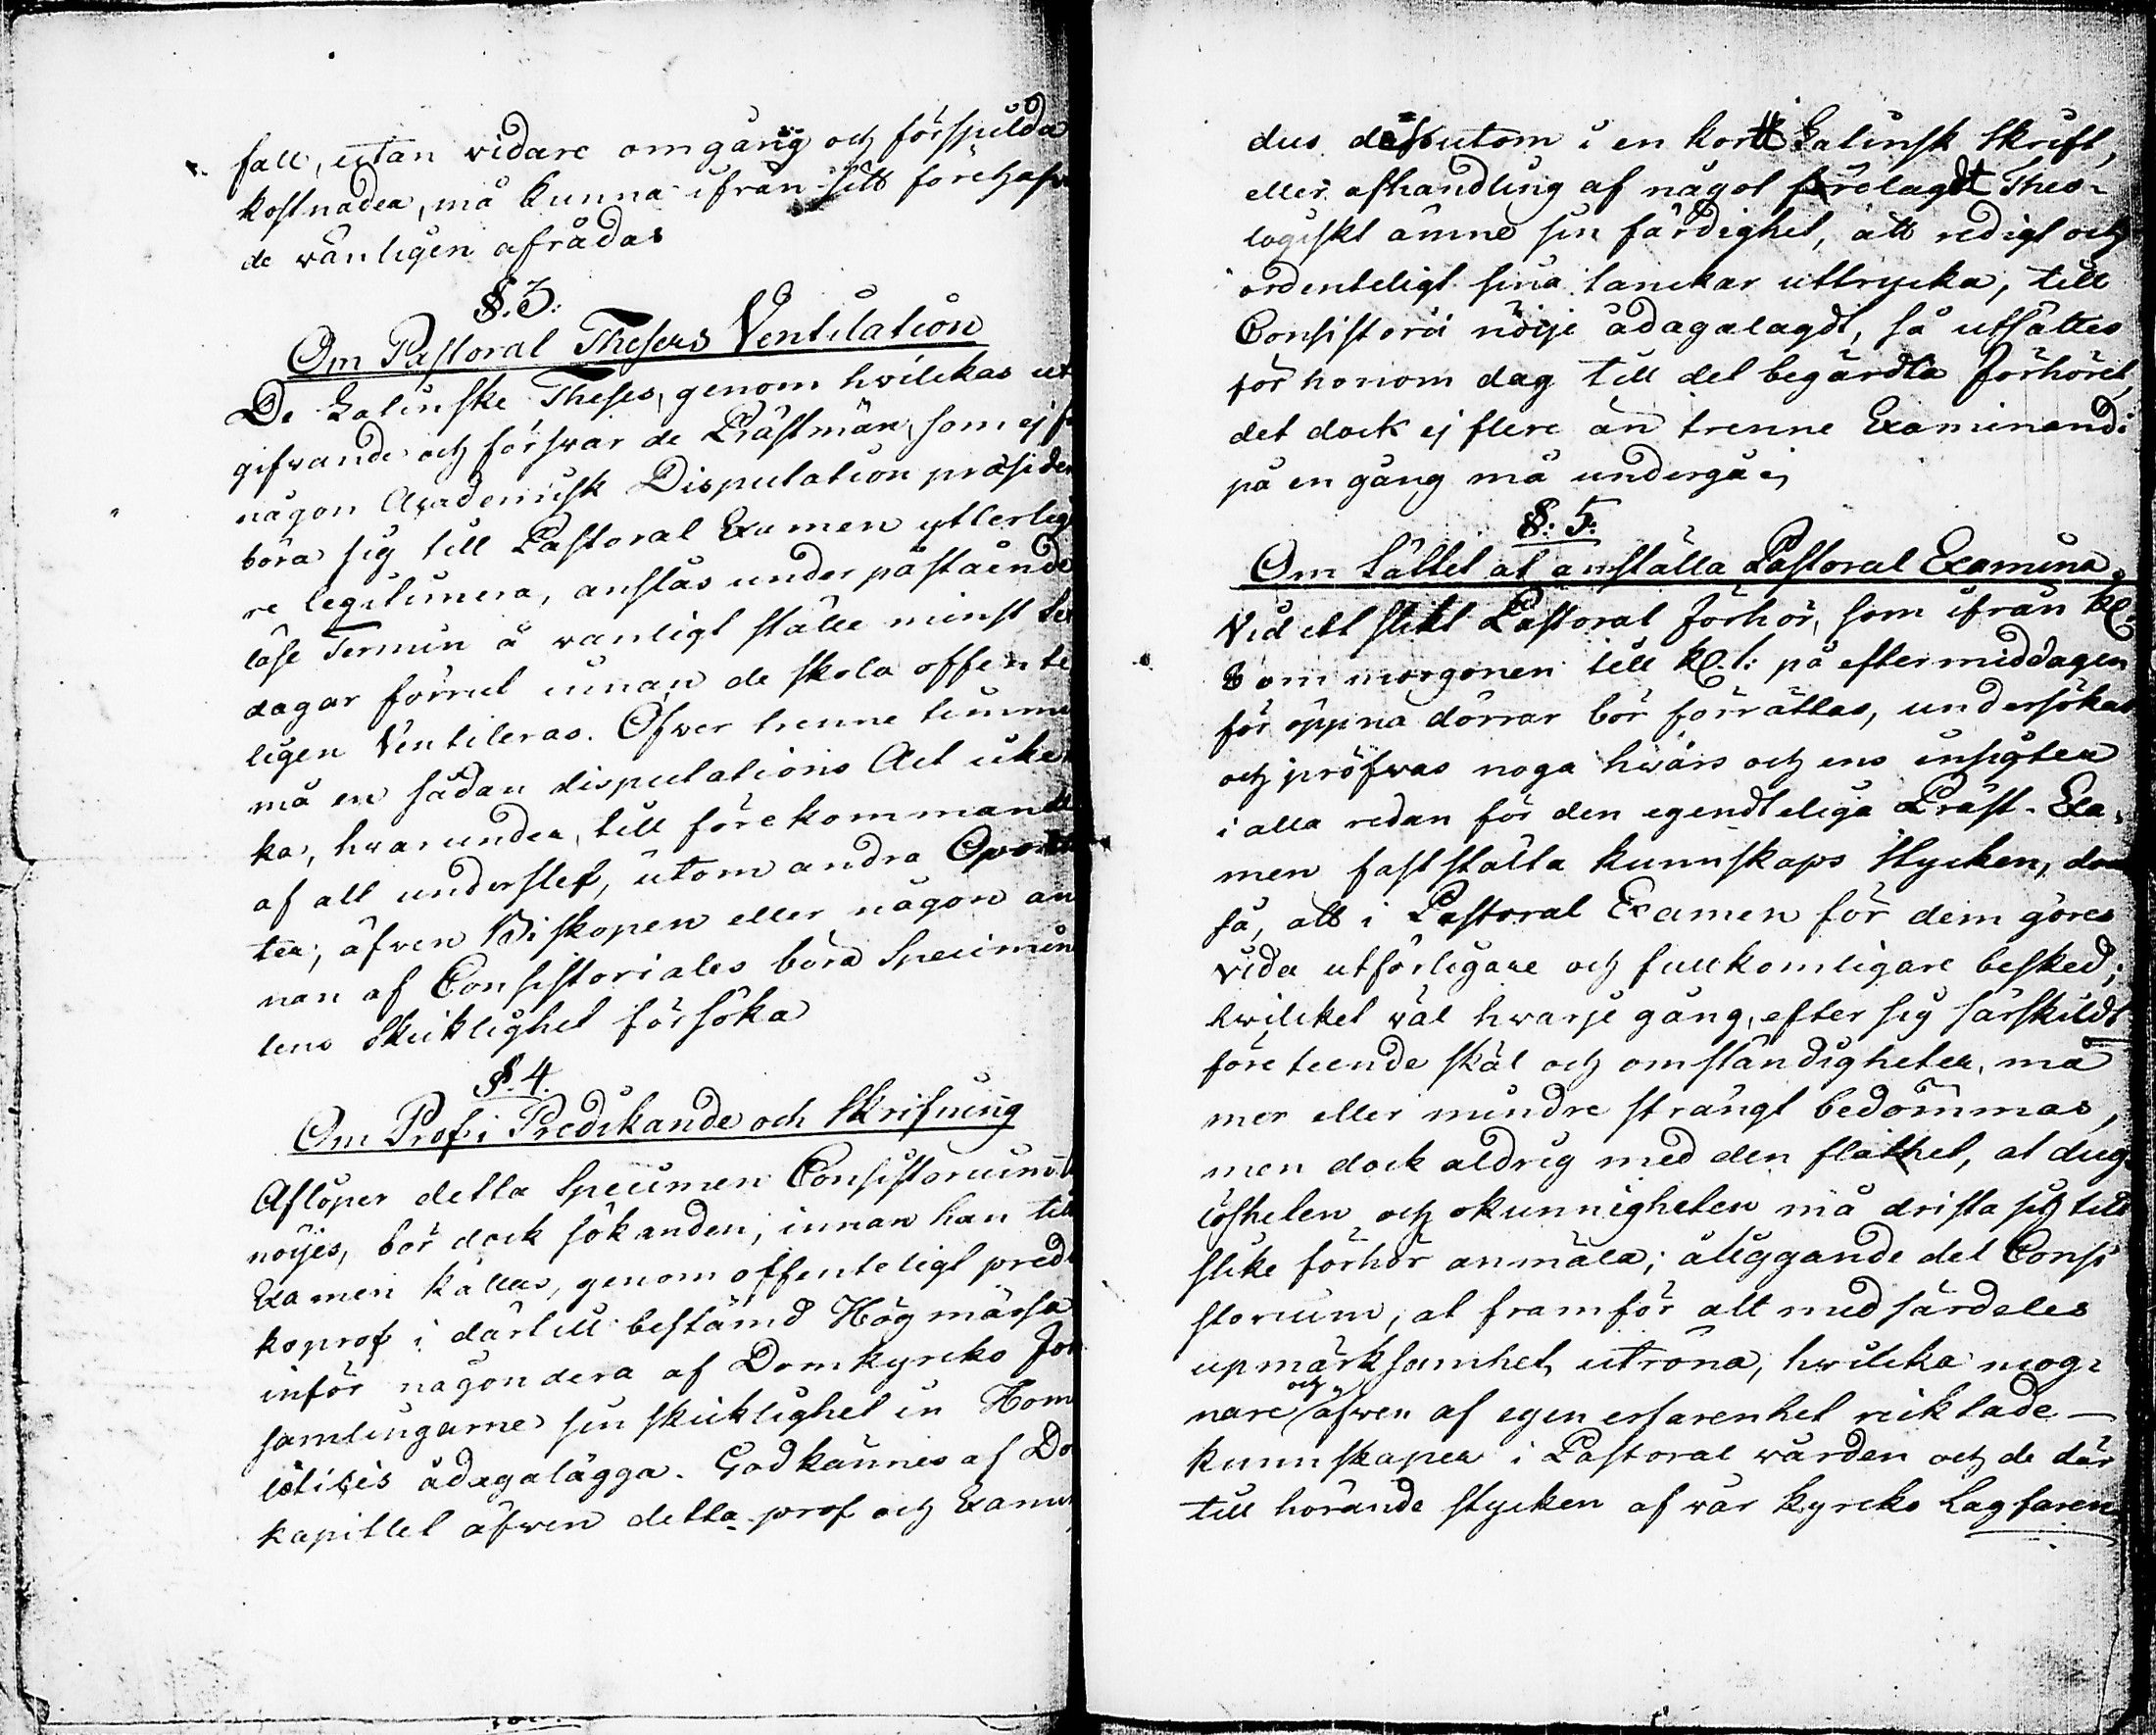 fall, utan vidare omgång och förspilda
kostnader, må kunna ifrån sitt förehafvan
de wänligen afrådas
§. 3:
Om Pastoral Thesers Ventilation
De Latinske Theses, genom hvilckas ut
gifvande och försvar de Prästmän, som ej
någon Academisk Disputation præsider
böra sig till Pastoral Examen ytterlig
re legitimera, anslås under påstående
läse Termin å vanligt ställe minst
dagar förrut innan de skola offente
ligen Ventileras. Öfver trenne timm
må en sådan disputations Act icke
ka, hvarunder, till förekommand
af alt underslef, utom andra Oponen
ter, äfven Biskopen eller någon an
nan af Consistoriales böra Specimen
tens Skicklighet försöka
§. 4.
Om Prof i Predikande och Skrifning
Aflöper detta Specimen Consistorium til
nöijes, bör dock sökanden, innan han till
Examen kallas, genom offenteligt predi
koprof i därtill bestämd Högmässa
inför någondera af Domkyrcko För
samlingarne sin skicklighet in Hom
ileticis ådagalägga. Godkännes af Do
kapittlet äfven detta prof och Exami
dus dessutom i en kort Latinsk Skrift,
eller afhandling af något förelagdt Theo-
logiskt ämne sin färdighet, att redigt och
ordenteligt sina tanckar uttrycka, till
Consistorii nöije ådagalagdt, så utsättes
för honom dag till det begärdta Förhöret,
det dock ej flere än trenne Examinandi
på en gång må undergå
§: 5:
Om Sättet at anställa Pastoral Examina.
Vid ett slikt Pastoral Förhör, som ifrån kl.
8 om morgonen till kl. 1: på eftermiddagen
för öppna dörrar bör förrättas, undersökas
och pröfvas noga hvars och ens insigter
i alla redan för den egendteliga Präst-Exa-
men faststälta kunskaps stycken, dock
så, att i Pastoral Examen för dem göres
vida utförligare och fullkomligare besked;
hvilcket väl hvarje gång, efter sig särskildt
företeende skäl och omständigheter, må
mer eller mindre strängt bedömmas,
men dock aldrig med den flathet, at dug-
lösheten och okunnigheten må drista sig till
slike förhör anmäla; åliggande det Consi
storium, at framför alt med särdeles
upmärksamhet utröna, hvilcka mog-
nare och äfven af egen erfarenhet ricktade
kunskaper i Pastoral vården och de där
till hörande stycken af vår kyrcko Lagfaren